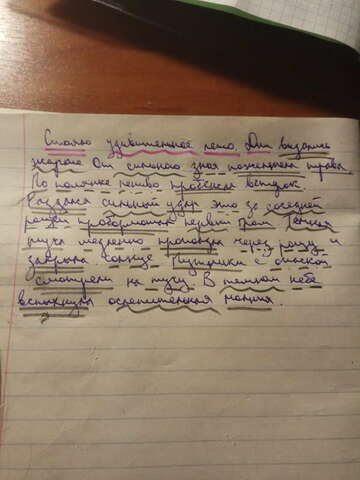 Стояло удивительное лето. Дни выдались
жаркие От сильного зноя пожелтела трава.
По полянке лениво пробежал ветерок.
Раздался сильный удар это за соседней
рощей пробормотал первый гром Темная
туча медленно проползла через рощу и
закрыла солнце Путники с опаской
смотрели на тучу. В темном небе
вспыхнула ослепительная молния.